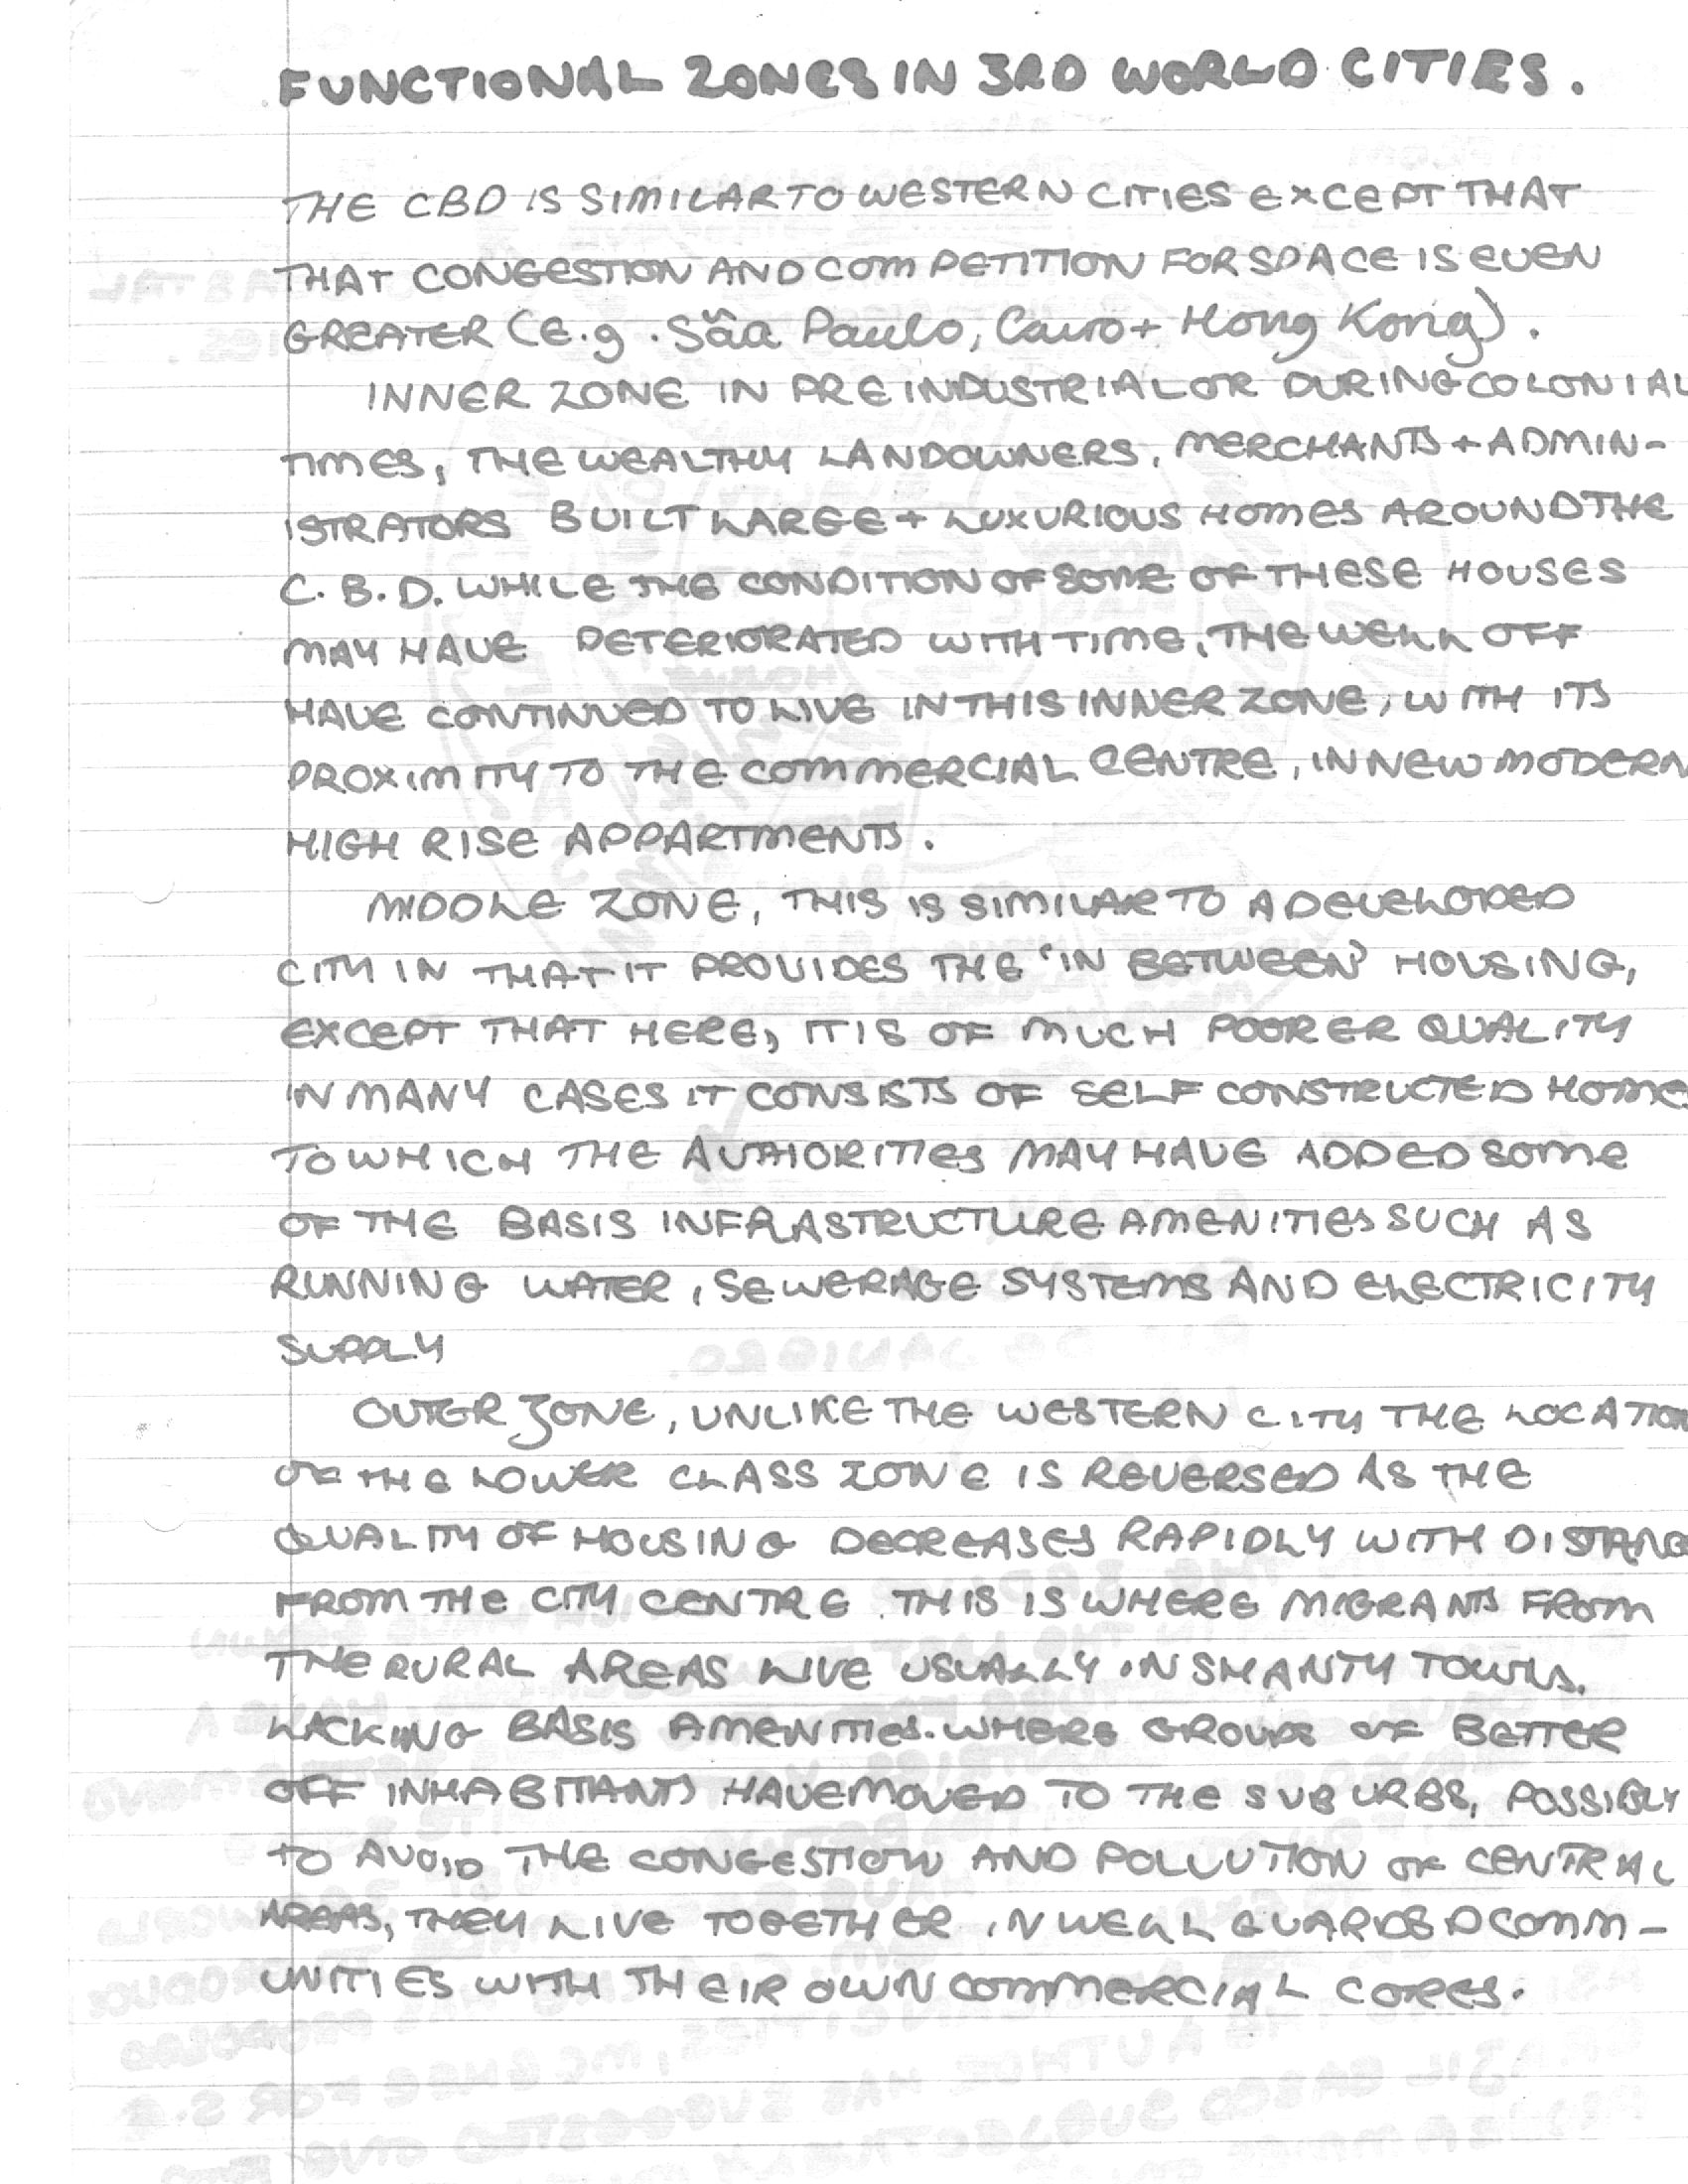 FUNCTIONAL ZONES IN 3RD WORLD CITIES.
THE CBD IS SIMILAR TO WESTERN CITIES EXCEPT THAT
THAT CONGESTION AND COMPETITION FOR SPACE IS EVEN
GREATER (E.g. Sãa Paulo, Cairo + Hong Kong).
INNER ZONE IN PRE INDUSTRIAL OR DURING COLONIAL
TIMES, THE WEALTHY LANDOWNERS, MERCHANTS + ADMIN-
ISTRATORS BUILT LARGE + LUXURIOUS HOMES AROUND THE
C.B.D. WHILE THE CONDITION OF SOME OF THESE HOUSES
MAY HAVE DETERIORATED WITH TIME, THE WELL OFF
HAVE CONTINUED TO LIVE IN THIS INNER ZONE, WITH ITS
PROXIMITY TO THE COMMERCIAL CENTRE, IN NEW MODERN
HIGH RISE APPARTMENTS.
MIDDLE ZONE, THIS IS SIMILAR TO A DEVELOPED
CITY IN THAT IT PROVIDES THE 'IN BETWEEN' HOUSING,
EXCEPT THAT HERE, IT IS OF MUCH POORER QUALITY
IN MANY CASES IT CONSISTS OF SELF CONSTRUCTED HOMES
TO WHICH THE AUTHORITIES MAY HAVE ADDED SOME
OF THE BASIS INFRASTRUCTURE AMENITIES SUCH AS
RUNNING WATER, SEWERAGE SYSTEMS AND ELECTRICITY
SUPPLY
OUTER ZONE, UNLIKE THE WESTERN CITY THE LOCATION
OF THE LOWER CLASS ZONE IS REVERSED AS THE
QUALITY OF HOUSING DECREASES RAPIDLY WITH DISTANC
FROM THE CITY CENTRE. THIS IS WHERE MIGRANTS FROM
THE RURAL AREAS LIVE USUALLY IN SHANTY TOWNS.
LACKING BASIS AMENITIES. WHERE GROUPS OF BETTER
OFF INHABITANTS HAVE MOVED TO THE SUBURBS, POSSIBLY
TO AVOID THE CONGESTION AND POLLUTION OF CENTRAL
AREAS, THEY LIVE TOGETHER IN WELL GUARDED COMM-
UNITIES WITH THEIR OWN COMMERCIAL CORES.